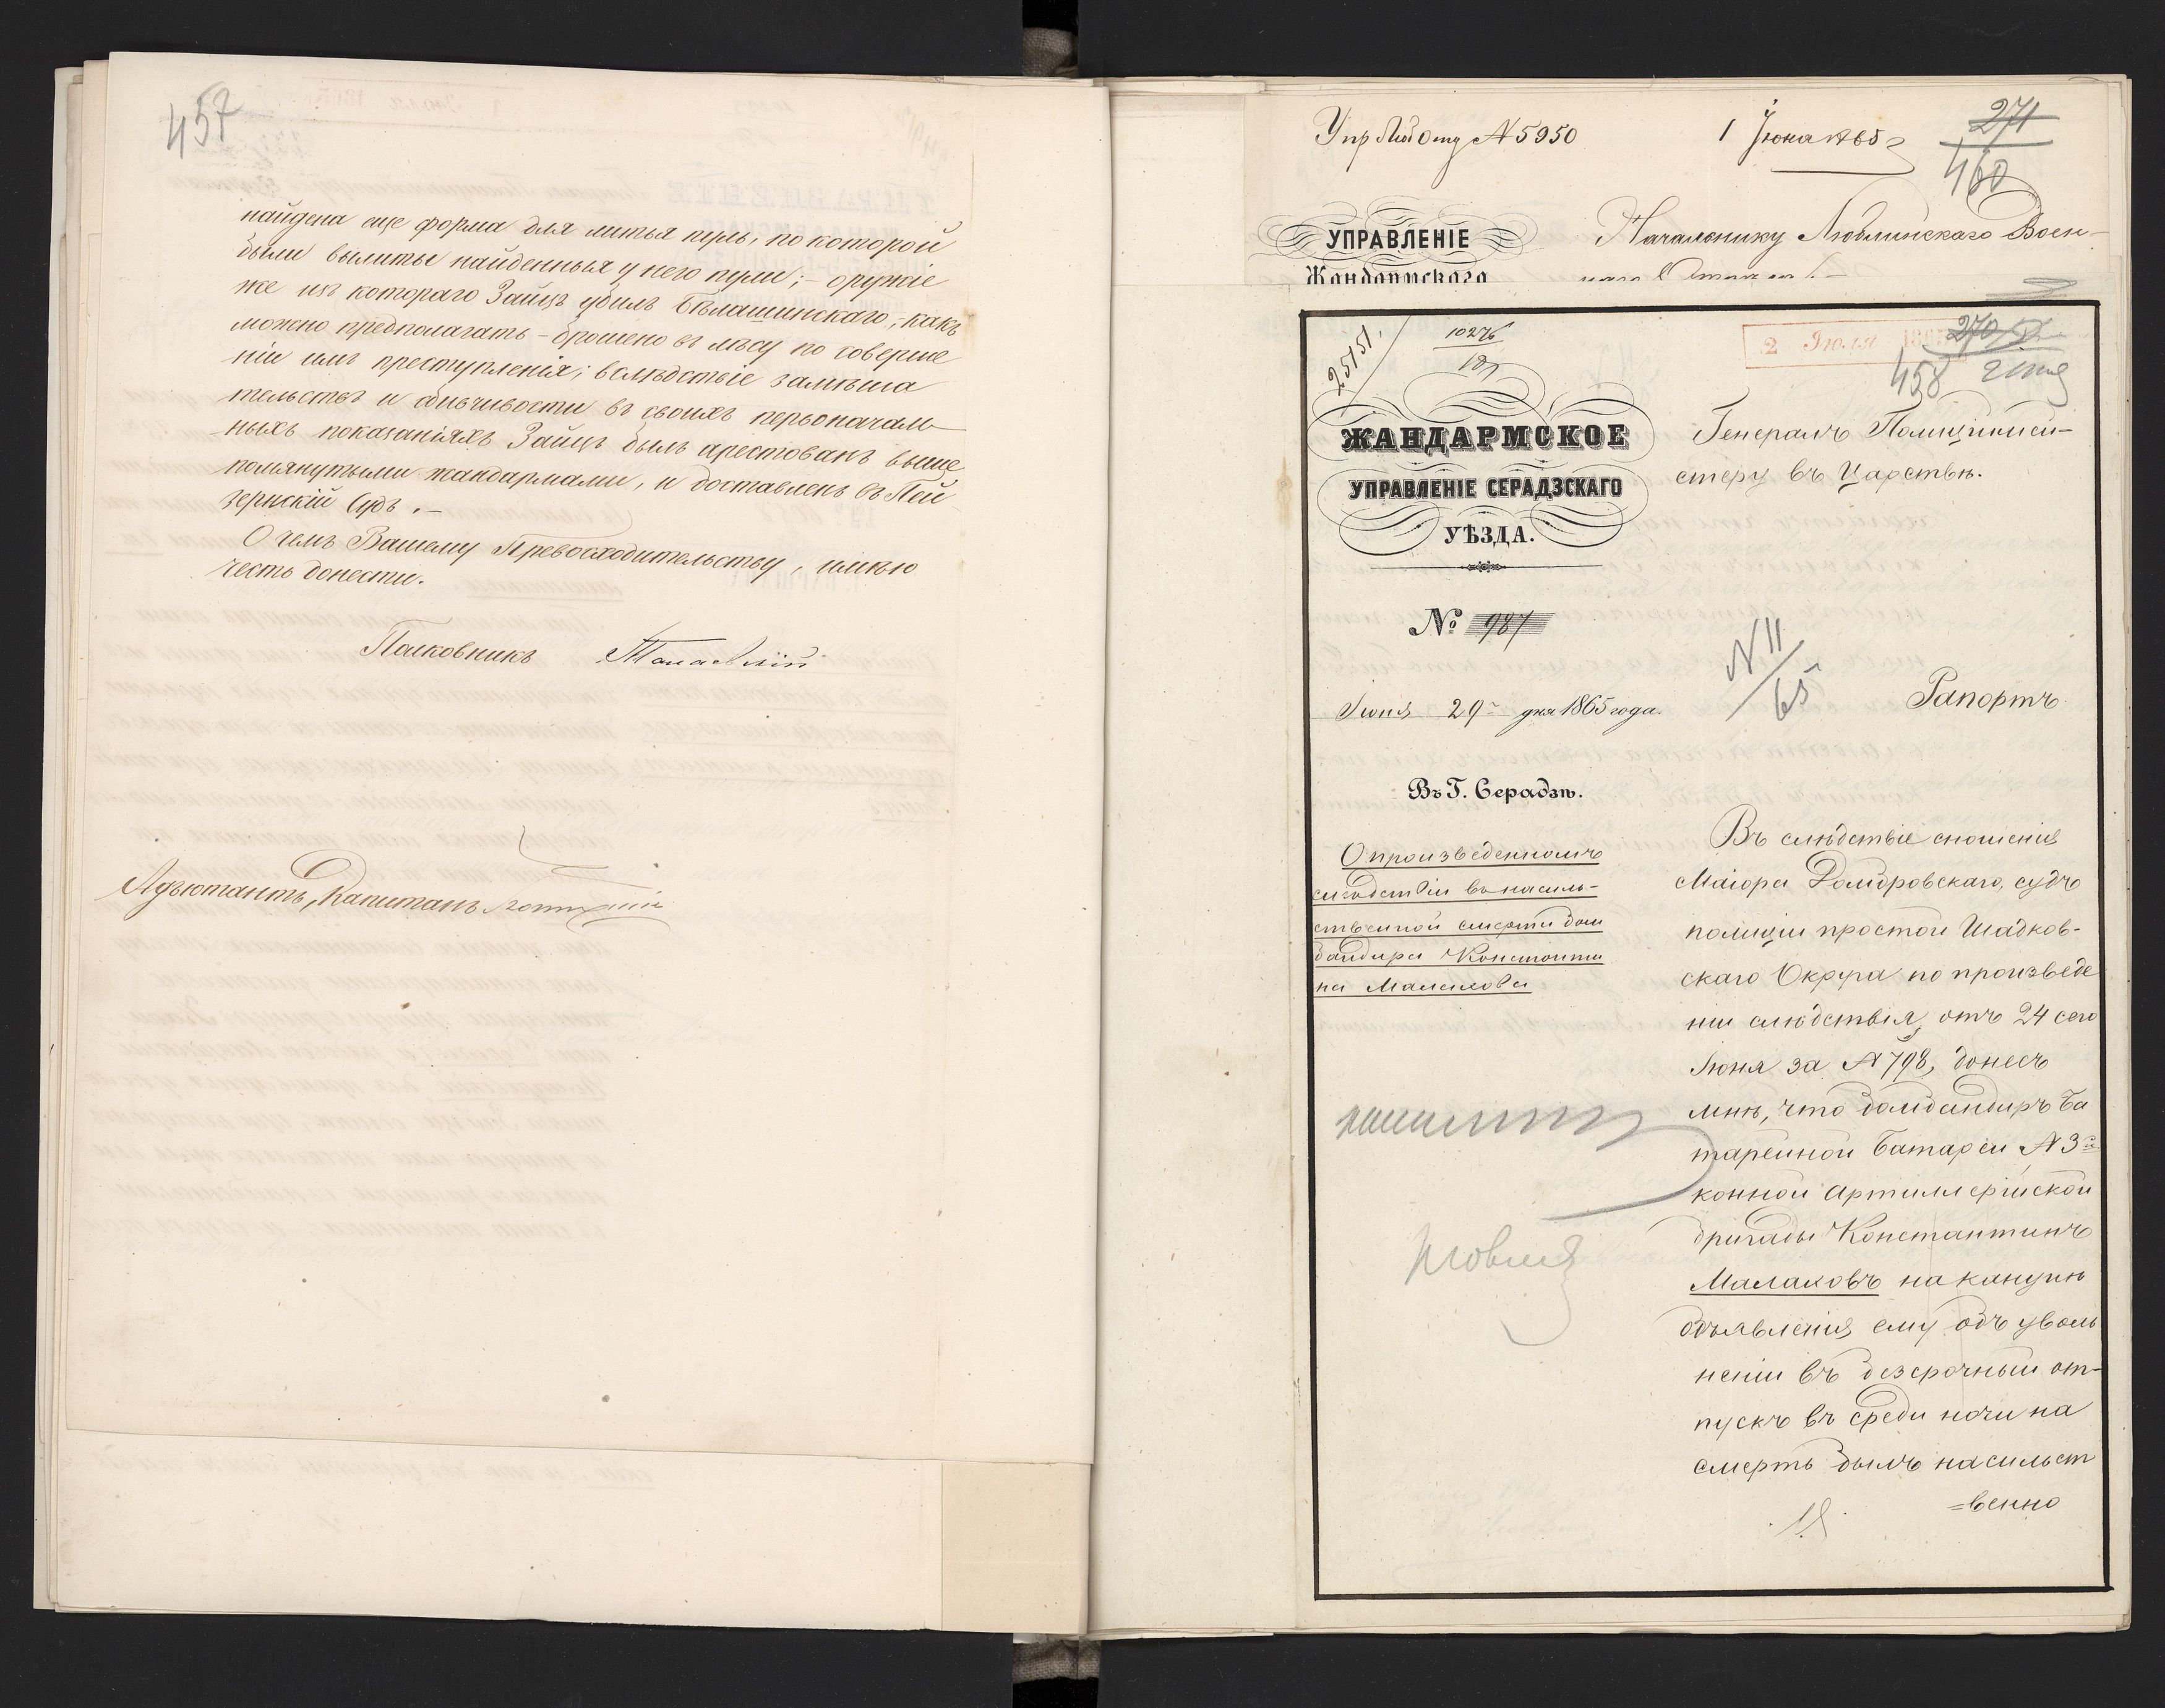 457
найдена еще форма для литья пуль, по которой
были вылиты найденныя у него пули; – оружіе
же изъ котораго Заіцъ убилъ Бѣлашинскаго, – какъ
можно предполагать – брошено въ лѣсу по соверше
ніи имъ преступленія; вслѣдствіе замѣша
тельствъ и сбивчивости въ своихъ первоначаль
ныхъ показаніяхъ Заіцъ былъ арестованъ выше
помянутыми жандармами, и доставленъ въ Пей
зернскій Судъ. –
О чемъ Вашему Превосходительству, имѣю
честь донести.
Полковникъ
Адъютантъ, Капитанъ
Упр Люб Отд N 5950
1 Іюня 1865 г
271
460
УПРАВЛЕНІЕ
Жандармскаго
Начальнику Люблинскаго Воен-
наго Отдѣла. –
25151.
10276
2 Іюля 1865
270
458
ЖАНДАРМСКОЕ
УПРАВЛЕНІЕ СЕРАДЗСКАГО
УѢЗДА.
Генералъ Полиціймей-
стеру въ Царствѣ.
№ 987
N 11
65
Іюня 29 дня 1865 года.
Рапортъ
Въ Г. Серадзѣ.
О произведенномъ
слѣдствіи о насиль-
ственной смерти бом
бандира Константи
на Малахова
Въ слѣдствіе сношенія
Маіора Домбровскаго, судъ
полиціи простой Шадков-
скаго Округа по произведе
ніи слѣдствія, отъ 24 сего
Іюня за N 798, донесъ
мнѣ, что бомбандиръ ба
тарейной батареи N 3й
конной артиллерійской
бригады Константинъ
Малаховъ наканунѣ
объявленія ему объ уволь
неніи въ безсрочный от-
пускъ въ среди ночи на
смерть былъ насильст
=венно